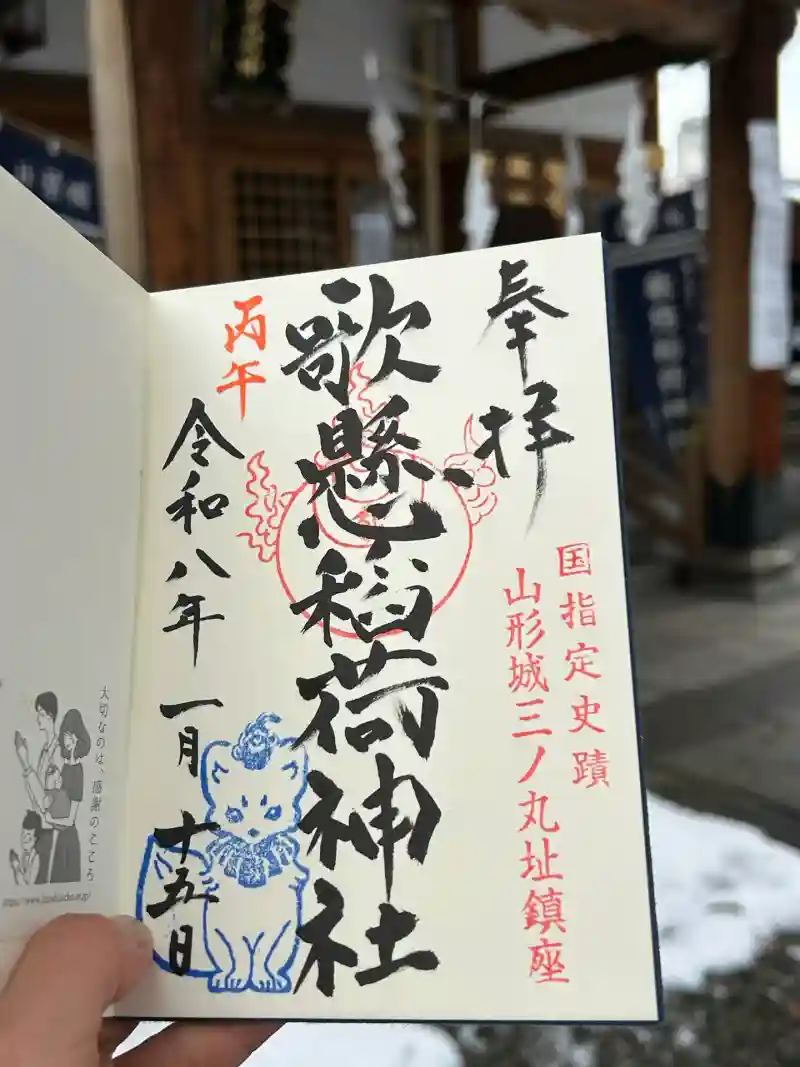 奉拝
国指定史蹟
山形城三ノ丸址鎮座
歌懸稲荷神社
丙午
令和八年一月十五日
大切なのは、感謝のこころ